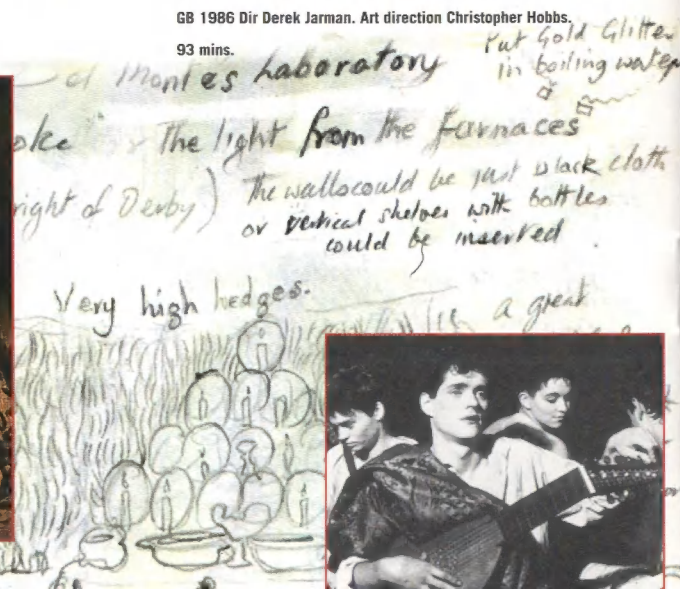 GB 1986 Dir Derek Jarman. Art direction Christopher Hobbs.
93 mins.
Put Gold Glitter
in boiling water
Laboratory
oke" the light from the furnaces
right of Derby)
The walls could be just black cloth
or vertical shelves with bottles
could be inserted
Very high hedges.
a great